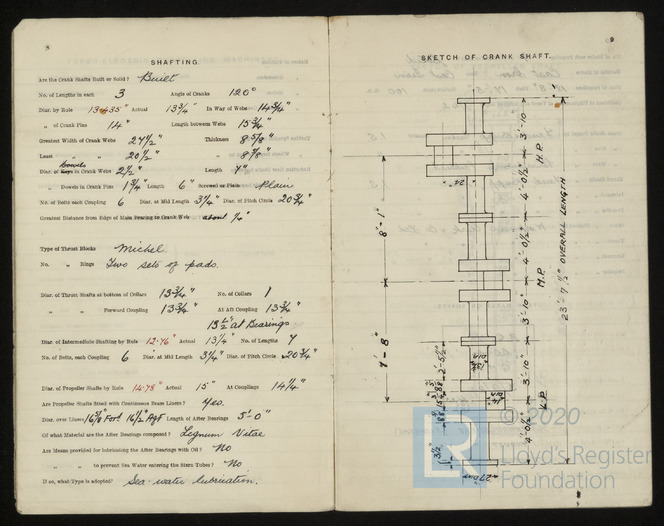 8
SHAFTING.
Are the Crank Shafts Built or Solid? Built
No. of Lengths in each 3 Angle of Cranks 120°
Diar. by Rule 13.435" Actual 13¾" In Way of Webs 14¾"
„ of Crank Pins 14" Length between Webs 15¾"
Greatest Width of Crank Webs 27½" Thickness 8⅝"
Least „ „ 20½" „ 8⅞"
Diar. of Keys dowels in Crank Webs 2½" Length 7"
„ Dowels in Crank Pins 1¾" Length 6" Screwed or Plain Plain
No. of Bolts each Coupling 6 Diar. at Mid Length 3¼" Diar. of Pitch Circle 20¾"
Greatest Distance from Edge of Main Bearing to Crank Web about ¼"
Type of Thrust Blocks Michel
No. „ Rings Two sets of pads.
Diar. of Thrust Shafts at bottom of Collars 13¾" No. of Collars 1
„ „ Forward Coupling 13¾" At Aft Coupling 13¾"
13½" at Bearings
Diar. of Intermediate Shafting by Rule 12.76" Actual 13¼" No. of Lengths 7
No. of Bolts, each Coupling 6 Diar. at Mid Length 3¼" Diar. of Pitch Circle 20¾"
Diar. of Propeller Shafts by Rule 14.78" Actual 15" At Couplings 14¼"
Are Propeller Shafts fitted with Continuous Brass Liners? Yes.
Diar. over Liners 16⅝" For'd 16½" Aft Length of After Bearings 5'-0"
Of what Material are the After Bearings composed? Lignum Vitae
Are Means provided for lubricating the After Bearings with Oil? No
„ „ to prevent Sea Water entering the Stern Tubes? No
If so, what Type is adopted? Sea-water lubrication.
9
SKETCH OF CRANK SHAFT.
3'-10"
H.P.
24"
4'-0½"
8'-1"
4'-0½"
M.P.
23'-7½" OVERALL LENGTH
3'-10"
7'-8"
2'-5½"
3'-10"
L.P.
4'-0½"
© 2020
Lloyd's Register
Foundation